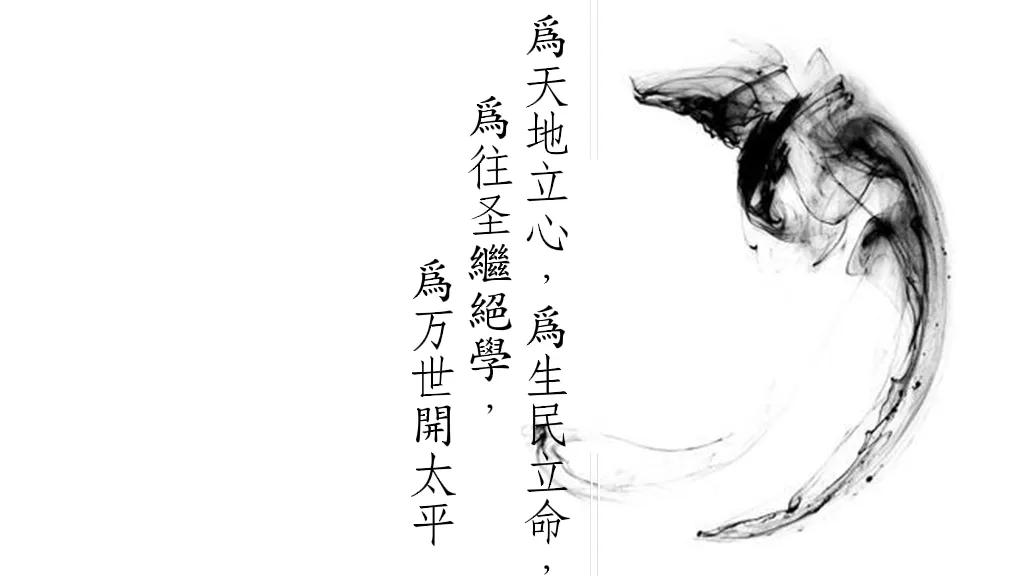 爲天地立心，爲生民立命，
爲往圣繼絕學，
爲万世開太平